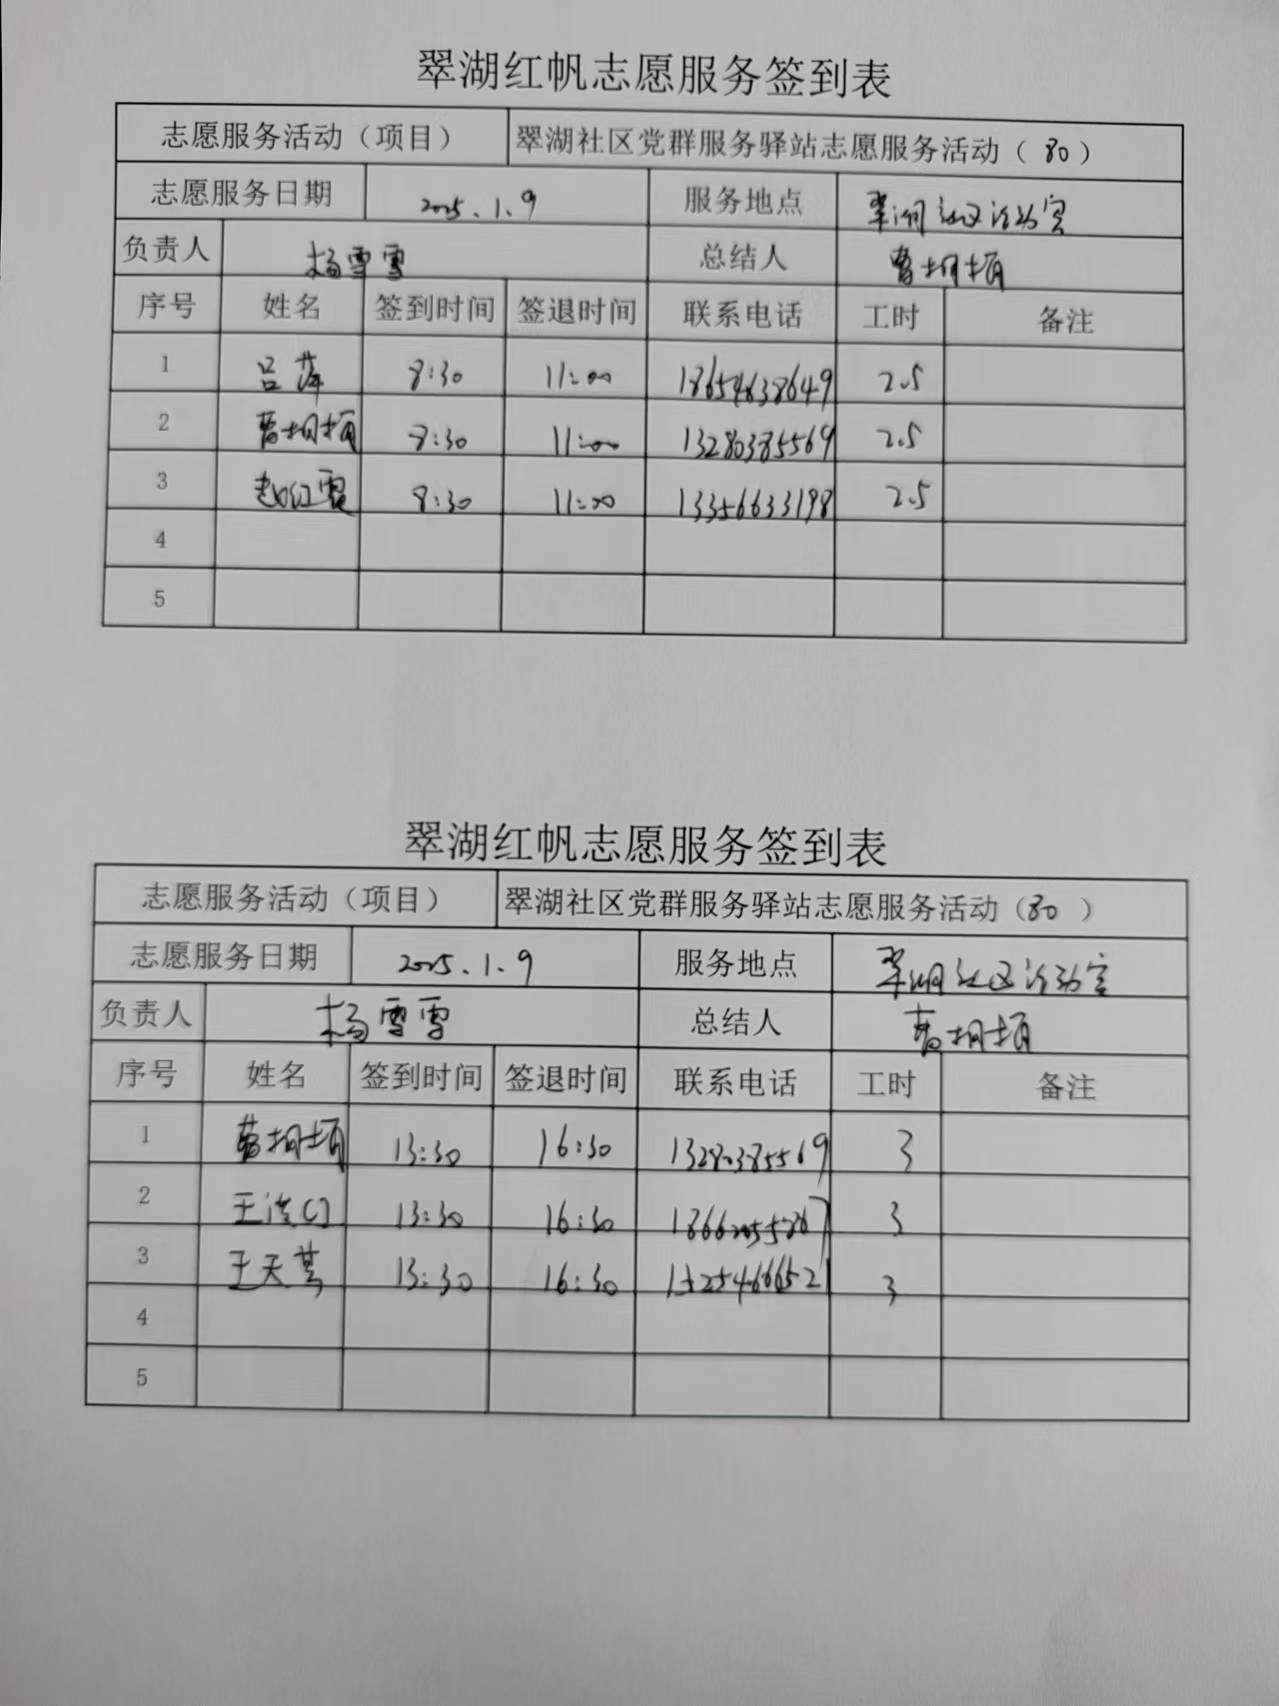 翠湖红帆志愿服务签到表
志愿服务活动（项目） 翠湖社区党群服务驿站志愿服务活动（80）
志愿服务日期 2025.1.9 服务地点 翠湖社区活动室
负责人 杨雪雪 总结人
序号 姓名 签到时间 签退时间 联系电话 工时 备注
1 吕萍 8:30 11:00 18654638649 2.5
2 8:30 11:00 13280385569 2.5
3 赵红霞 8:30 11:00 13356633198 2.5
4
5
翠湖红帆志愿服务签到表
志愿服务活动（项目） 翠湖社区党群服务驿站志愿服务活动（80）
志愿服务日期 2025.1.9 服务地点 翠湖社区活动室
负责人 杨雪雪 总结人
序号 姓名 签到时间 签退时间 联系电话 工时 备注
1 13:30 16:30 13280385569 3
2 13:30 16:30 3
3 13:30 16:30 3
4
5